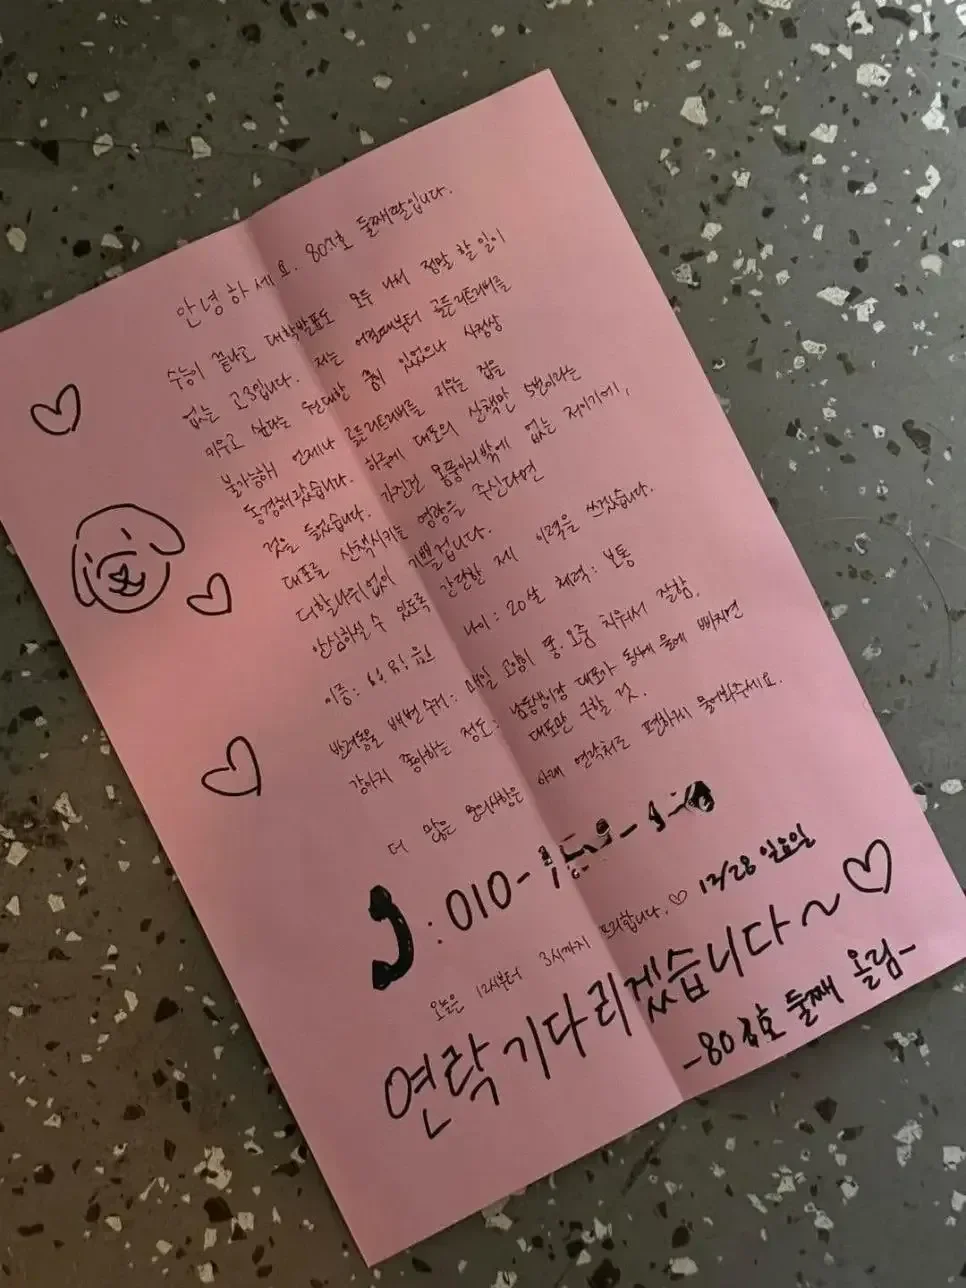 안녕하세요. 80호 둘째딸입니다.
수능이 끝나고 대학발표도 모두 나서 정말 할 일이
없는 고3입니다. 저는 어릴때부터 골든리트리버를
키우고 싶다는 원대한 꿈이 있었으나 사정상
불가능해 언제나 골든리트리버를 키우는 집을
동경해왔습니다. 하루에 대포의 산책만 5번이라는
것을 들었습니다. 가진건 몸뚱아리밖에 없는 저이기에,
대포를 산책시키는 영광을 주신다면
더할나위없이 기쁠겁니다.
안심하실 수 있도록 간단한 제 이력을 쓰겠습니다.
이름: 나이: 20살 체력: 보통
반려동물 배변 수거: 매일 고양이 똥.오줌 치워서 잘함.
강아지 좋아하는 정도: 남동생이랑 대포가 동시에 물에 빠지면
대포만 구할 것.
더 많은 문의사항은 아래 연락처로 편하게 물어봐주세요.
: 010-
오늘은 12시부터 3시까지 프리합니다.♡ 12/28 일요일
연락기다리겠습니다~♡
-80호 둘째 올림-